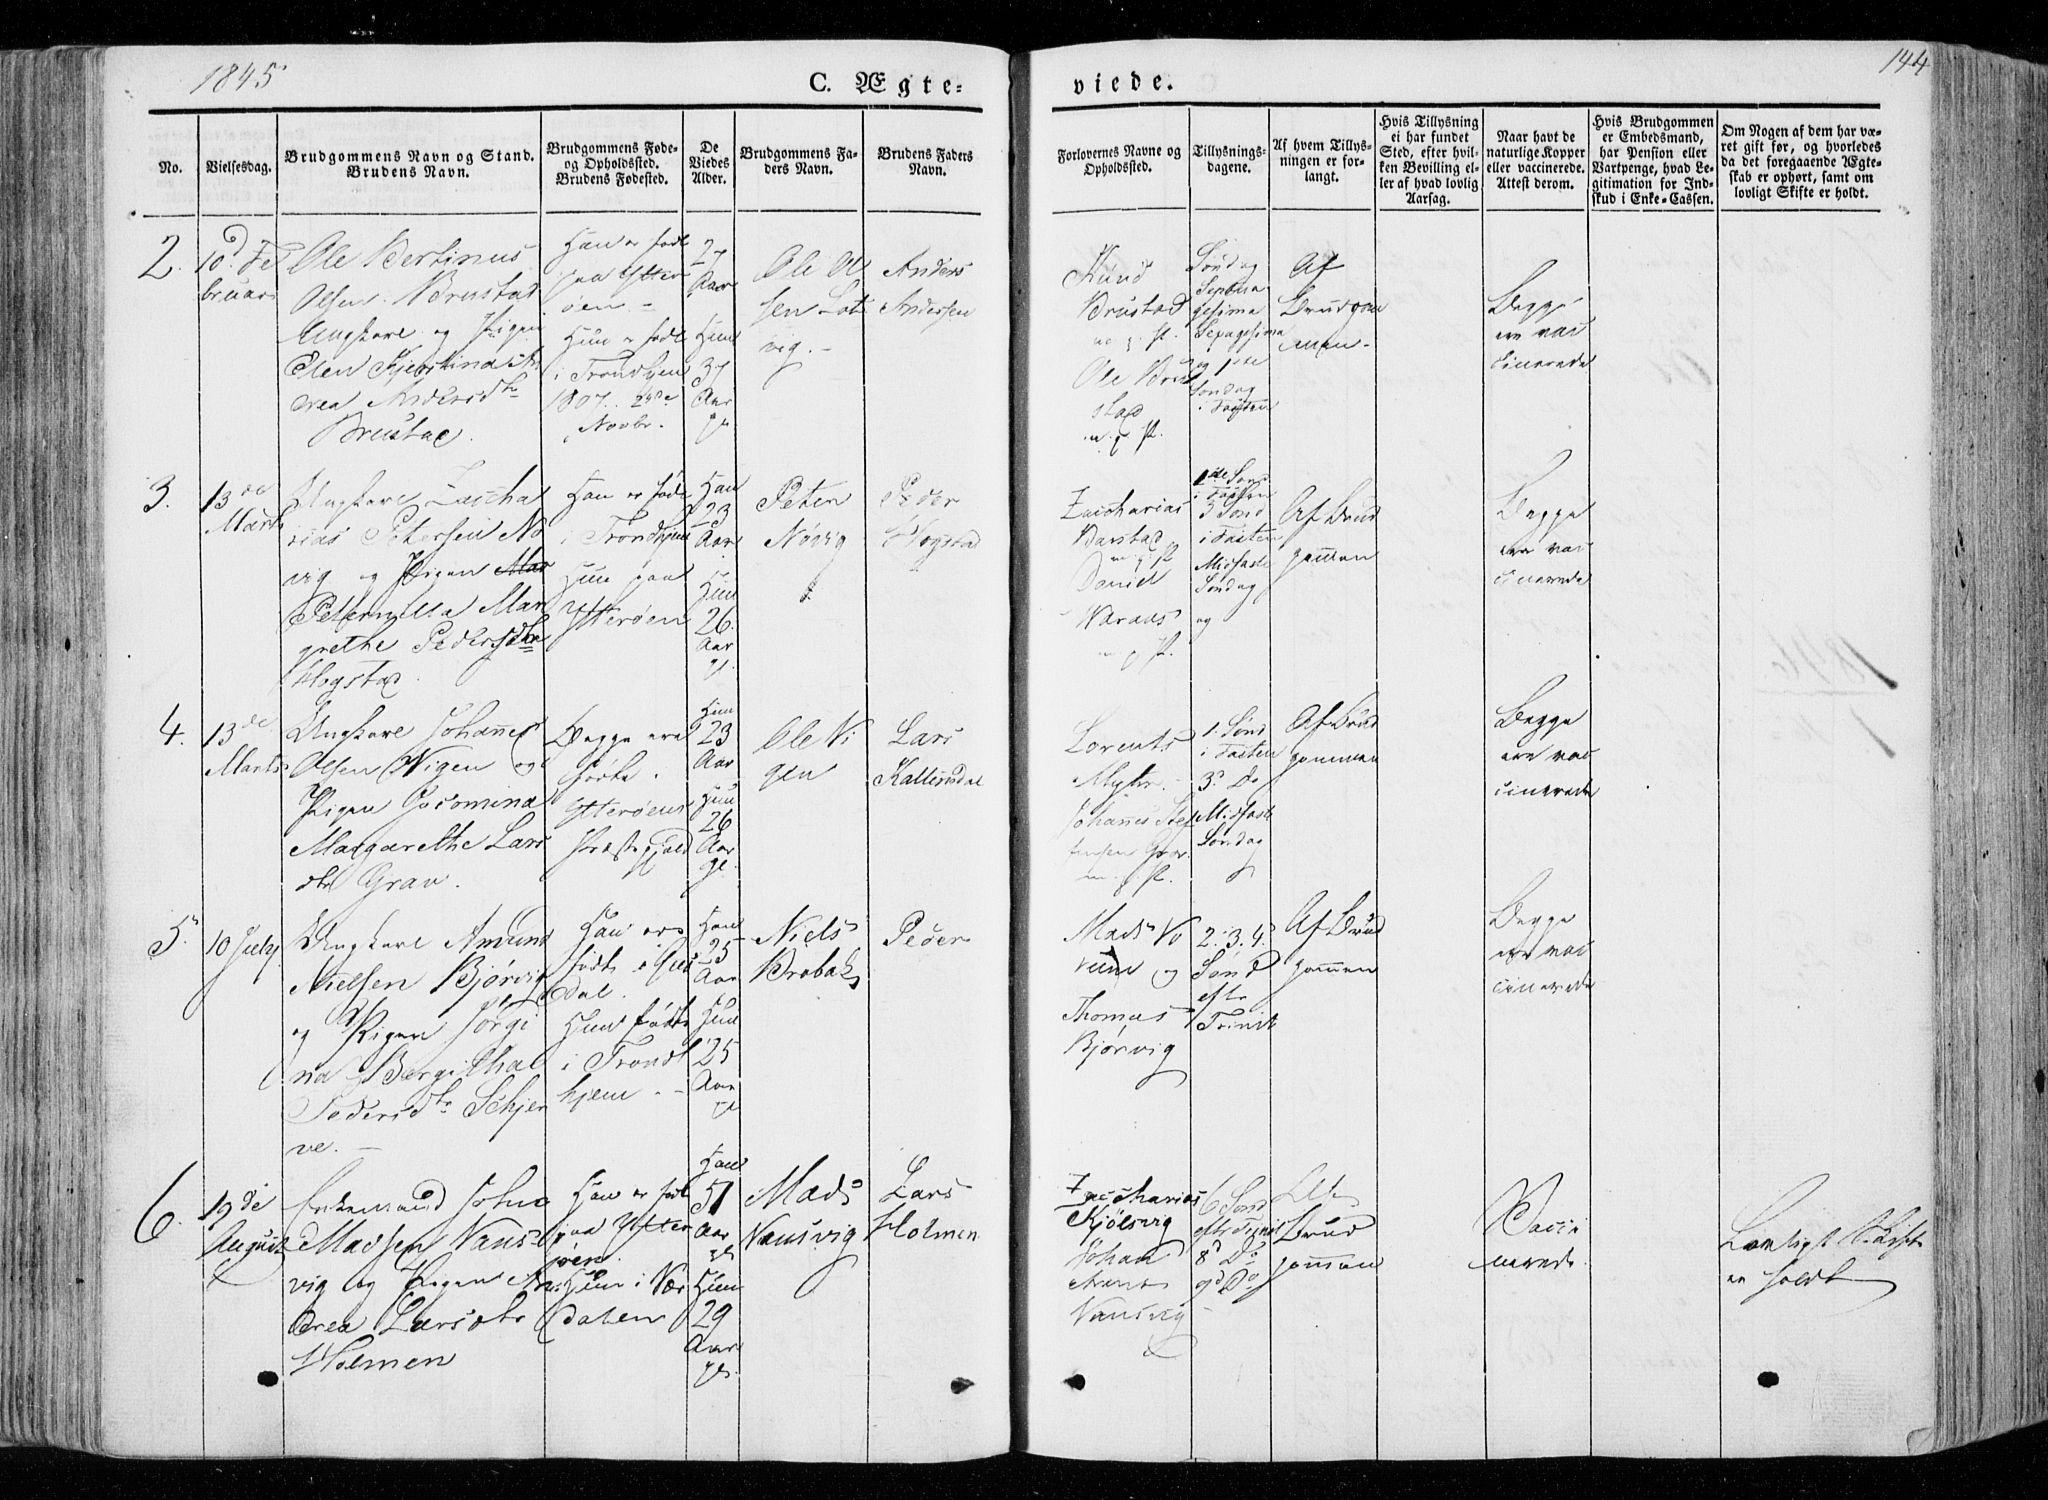 1845
144
C. Ægte-
viede.
No.
Vielsesdag.
Brudgommens Navn og Stand.
Brudens Navn.
Brudgommens Føde-
og Opholdssted.
Brudens Fødested.
De
Viedes
Alder.
Brudgommens Fa-
ders Navn.
Brudens Faders
Navn.
Forlovernes Navne og
Opholdssted.
Tillysnings-
dagene.
Af hvem Tillys-
ningen er for-
langt.
Hvis Tillysning
ei har fundet
Sted, efter hvil-
ken Bevilling el-
ler af hvad lovlig
Aarsag.
Naar havt de
naturlige Kopper
eller vaccinerede.
Attest derom.
Hvis Brudgommen
er Embedsmand,
har Pension eller
Vartpenge, hvad Le-
gitimation for Ind-
skud i Enke-Cassen.
Om Nogen af dem har væ-
ret gift før, og hvorledes
da det foregaaende Ægte-
skab er ophørt, samt om
lovligt Skifte er holdt.
2.
10d Fe
bruar
Ole Bertinus
Olsen Brustad
Ungkarl og Pigen
Elen Kjerstina An
drea Andersdtr
Brustad.
Han er født
paa Ytter
øen.
Hun er født
i Trondhjem
1807. 
Novbr.
27
Aar
Hun
37
Aar
gl
Ole Ol
sen Lot
vig.
Anders
Andersen
Knud
Brustad
m. p. P.
Ole Bru
stad
m. p. P.
Søndag
Septua
gesima
Sexagesima
og 1ste
Søndag
i Fasten
Af
Brudgom
men.
Begge
ere vac
cinerede
3.
13de
Marts
Ungkarl Zacha
rias Petersen Nø
vig og Pigen Mar
Petternilla Mar
grethe Pedersdtr
Hogstad.
Han er født
i Trondhjem
Hun paa
Ytterøen
Han
23
Aar
Hun
26
Aar
gl.
Peter
Nøvig
Peder
Hogstad
Zacharias
Barstad
m. p. P
Daniel
Naraas
m. p. P.
1ste Sønd
i Fasten
3 Sønd
i Fasten
Midfaste
Søndag
og
Af Brud
gommen
Begge
ere vac
cinerede
4.
13de
Marts
Ungkarl Johannes
Olsen Vigen og
Pigen Jacomina
Margarethe Lars
dtr Grav.
Begge ere
fødte i
Ytterøens
Præstegjeld
Han
23
Aar
Hun
26
Aar
gl.
Ole Vi
gen
Lars
Lorents
Johannes Stef
fensen Grav
m. p. P.
1. Sønd
i Fasten
3. Do
Midfaste
Søndag
Af Brud
gommen
Begge
ere vac
cinerede
5.
10 July
Ungkarl Amund
Nielsen Bjørvig
og Pigen Jørgi
na Bergithal
Pedersdtr Schjer
ve.
Han er
født i Gul
dal.
Hun født
i Trondt
hjem.
Han
25
Aar
Hun
25
Aar
gl
Niels
Brobak
Peder
Mads
og
Thomas
Bjørvig
2. 3. 4.
Sønd
eftr
Trinit
Af Brud
gommen
Begge
ere vac
cinerede
6.
19de
August
Enkemand John
Madsen Vans
vig og Pigen An
drea Larsdtr
Holmen
Han er født
paa Ytter
øen.
Hun i Vær
dalen
Han
51
Aar
gl
Hun
29
Aar
gl.
Mads
Vansvig
Lars
Holmen
Zacharias
Kjølsvig
Johan
Vansvig
6 Sønd
eftr Trinit
8d Do
9d Do
Af
Brud
gommen
Vacci
nerede
Lovligt Skifte
er holdt